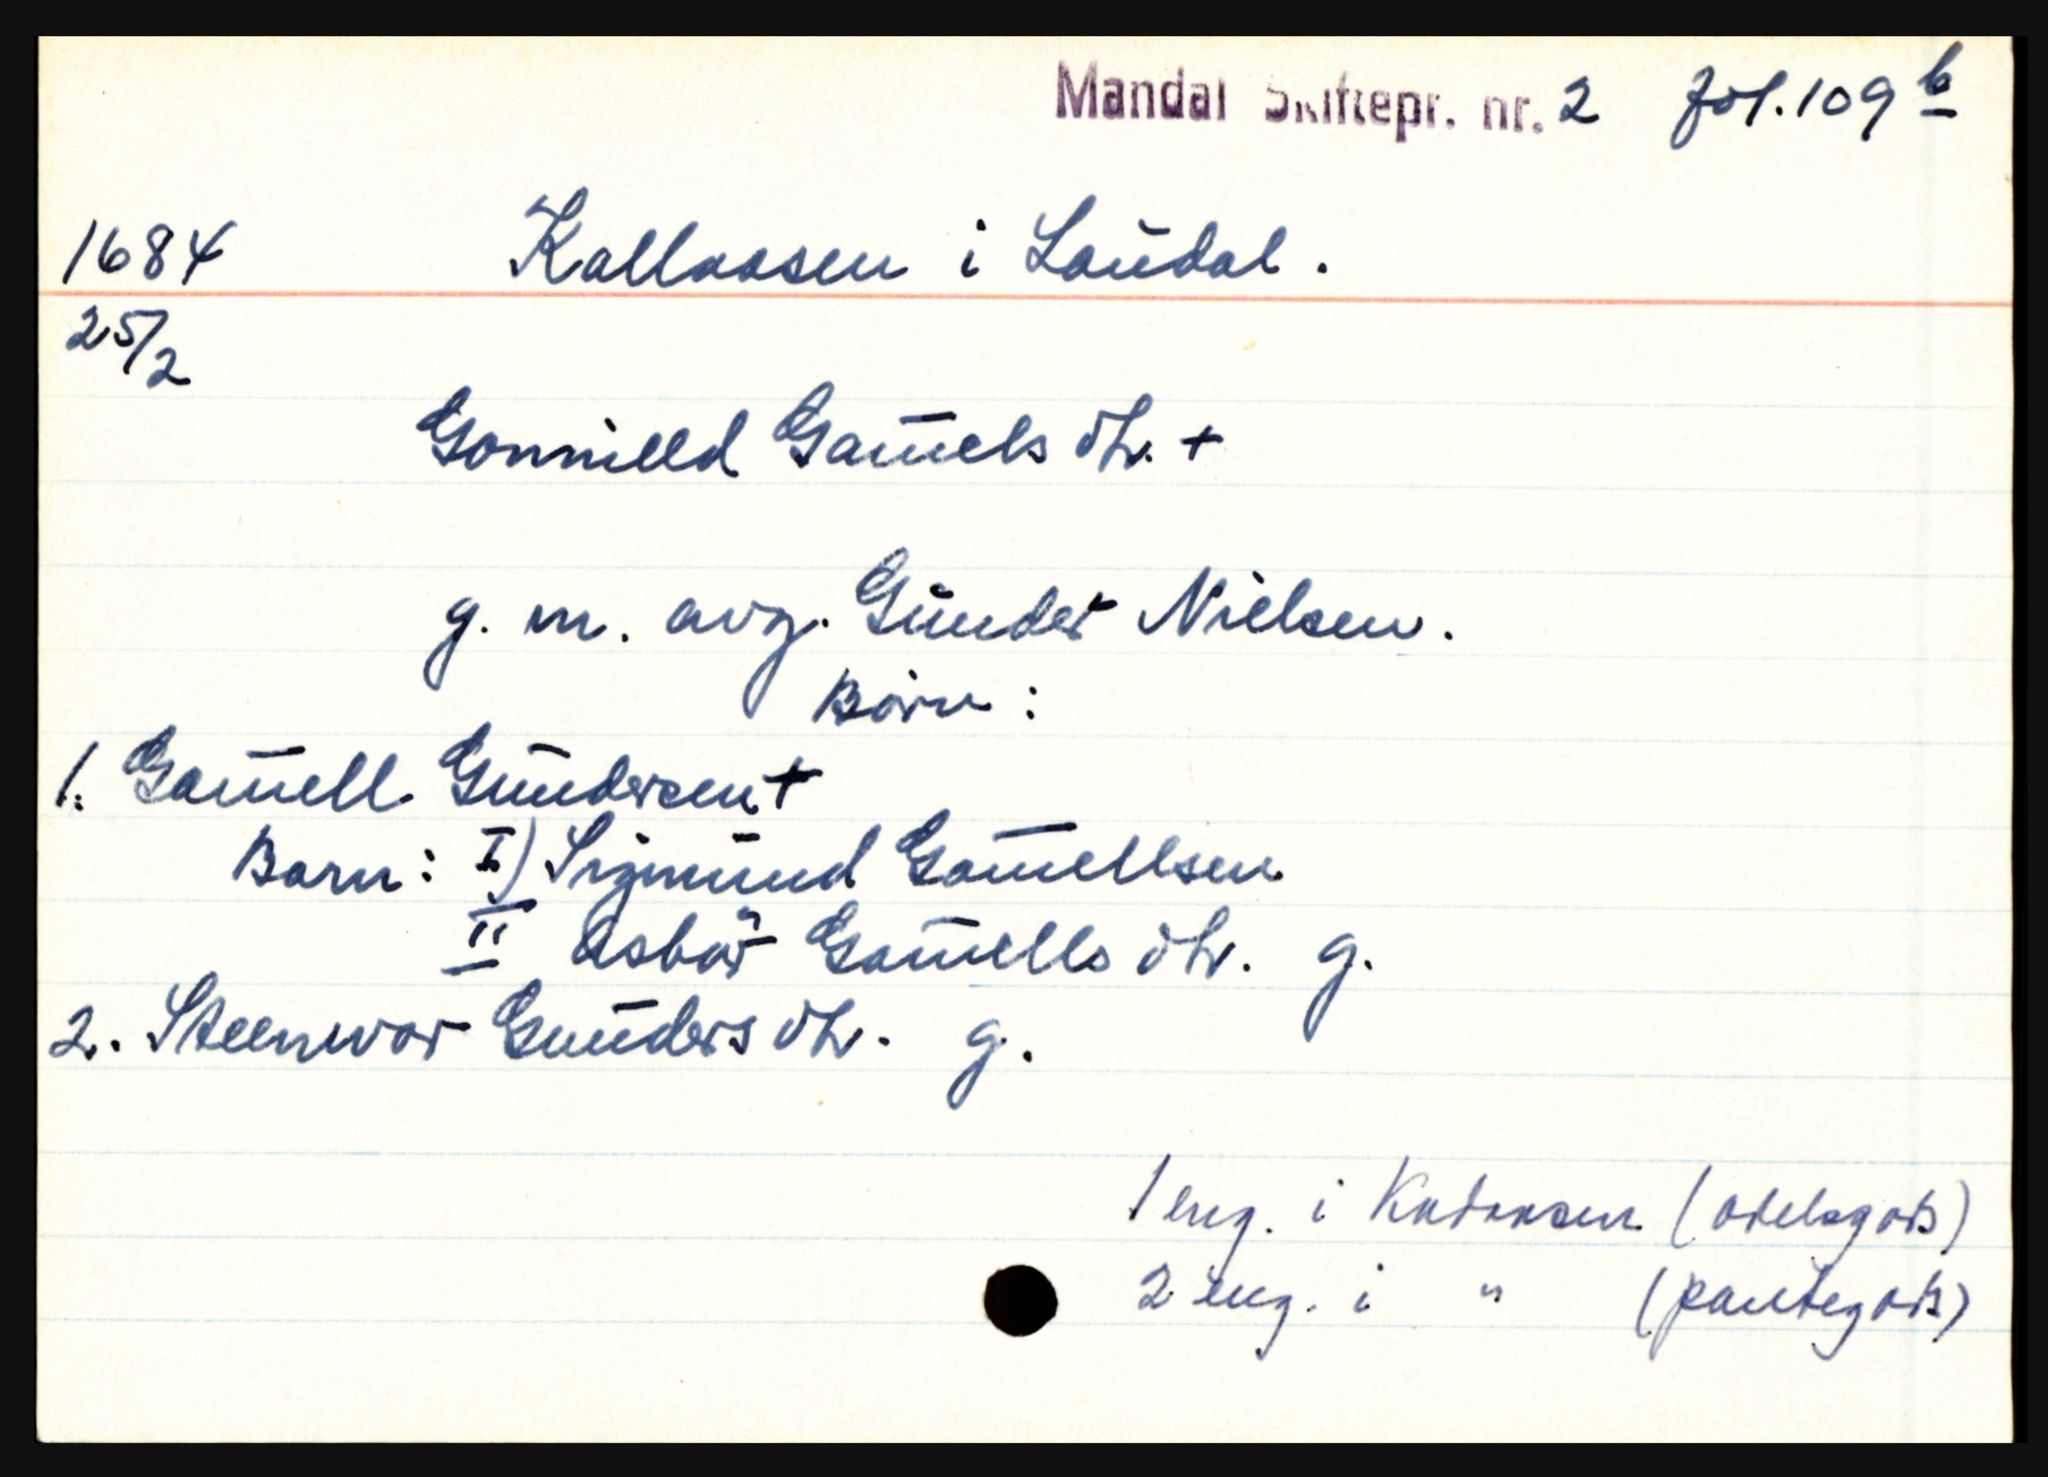 Mandal Skiftepr. nr. 2 fol. 109 b
1684 Kallaasen i Laudal.
25/2
Gonnilld Gamels dtr. +
g. m. avg. Gunder Nielsen.
Børn:
1. Gamell Gundersen +
Barn: I) Sigmund Gamellsen
II Asbør Gamells dtr. g.
2. Steenwor Gunders dtr. g.
1 eng. i (odelsgods)
2 eng. i " (pantegods)